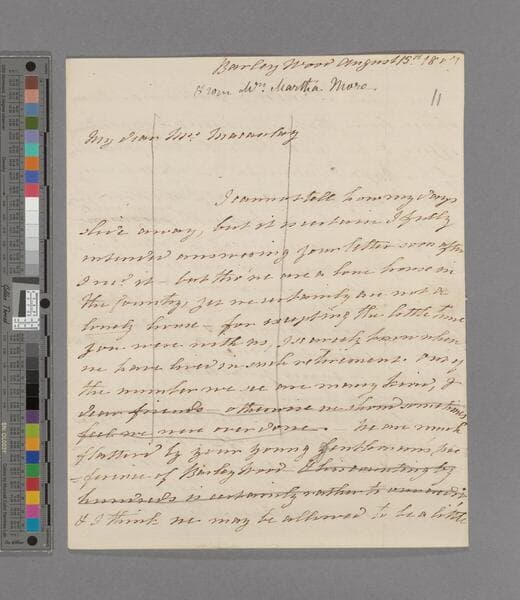 Barley Wood August 15th 18
From Mrs. Martha More.
11
My dear Mrs. Macaulay
I cannot tell how my days
slide away, but it is certain I fully
intended answering your letter soon after
I recd. it - but tho' we are a lone house in
the Country, yet we certainly are not a
lonely house - for excepting the little time
you were with us, I scarcely know when
we have lived in such retirement. Out of
the number we see are many kind, &
dear friends otherwise we should sometimes
feel we were over done. We are much
flattered by your young Gentleman's pre
-ference of Barley Wood & his counting by
hundreds is certainly rather to
& I think we may be allowed to be a little